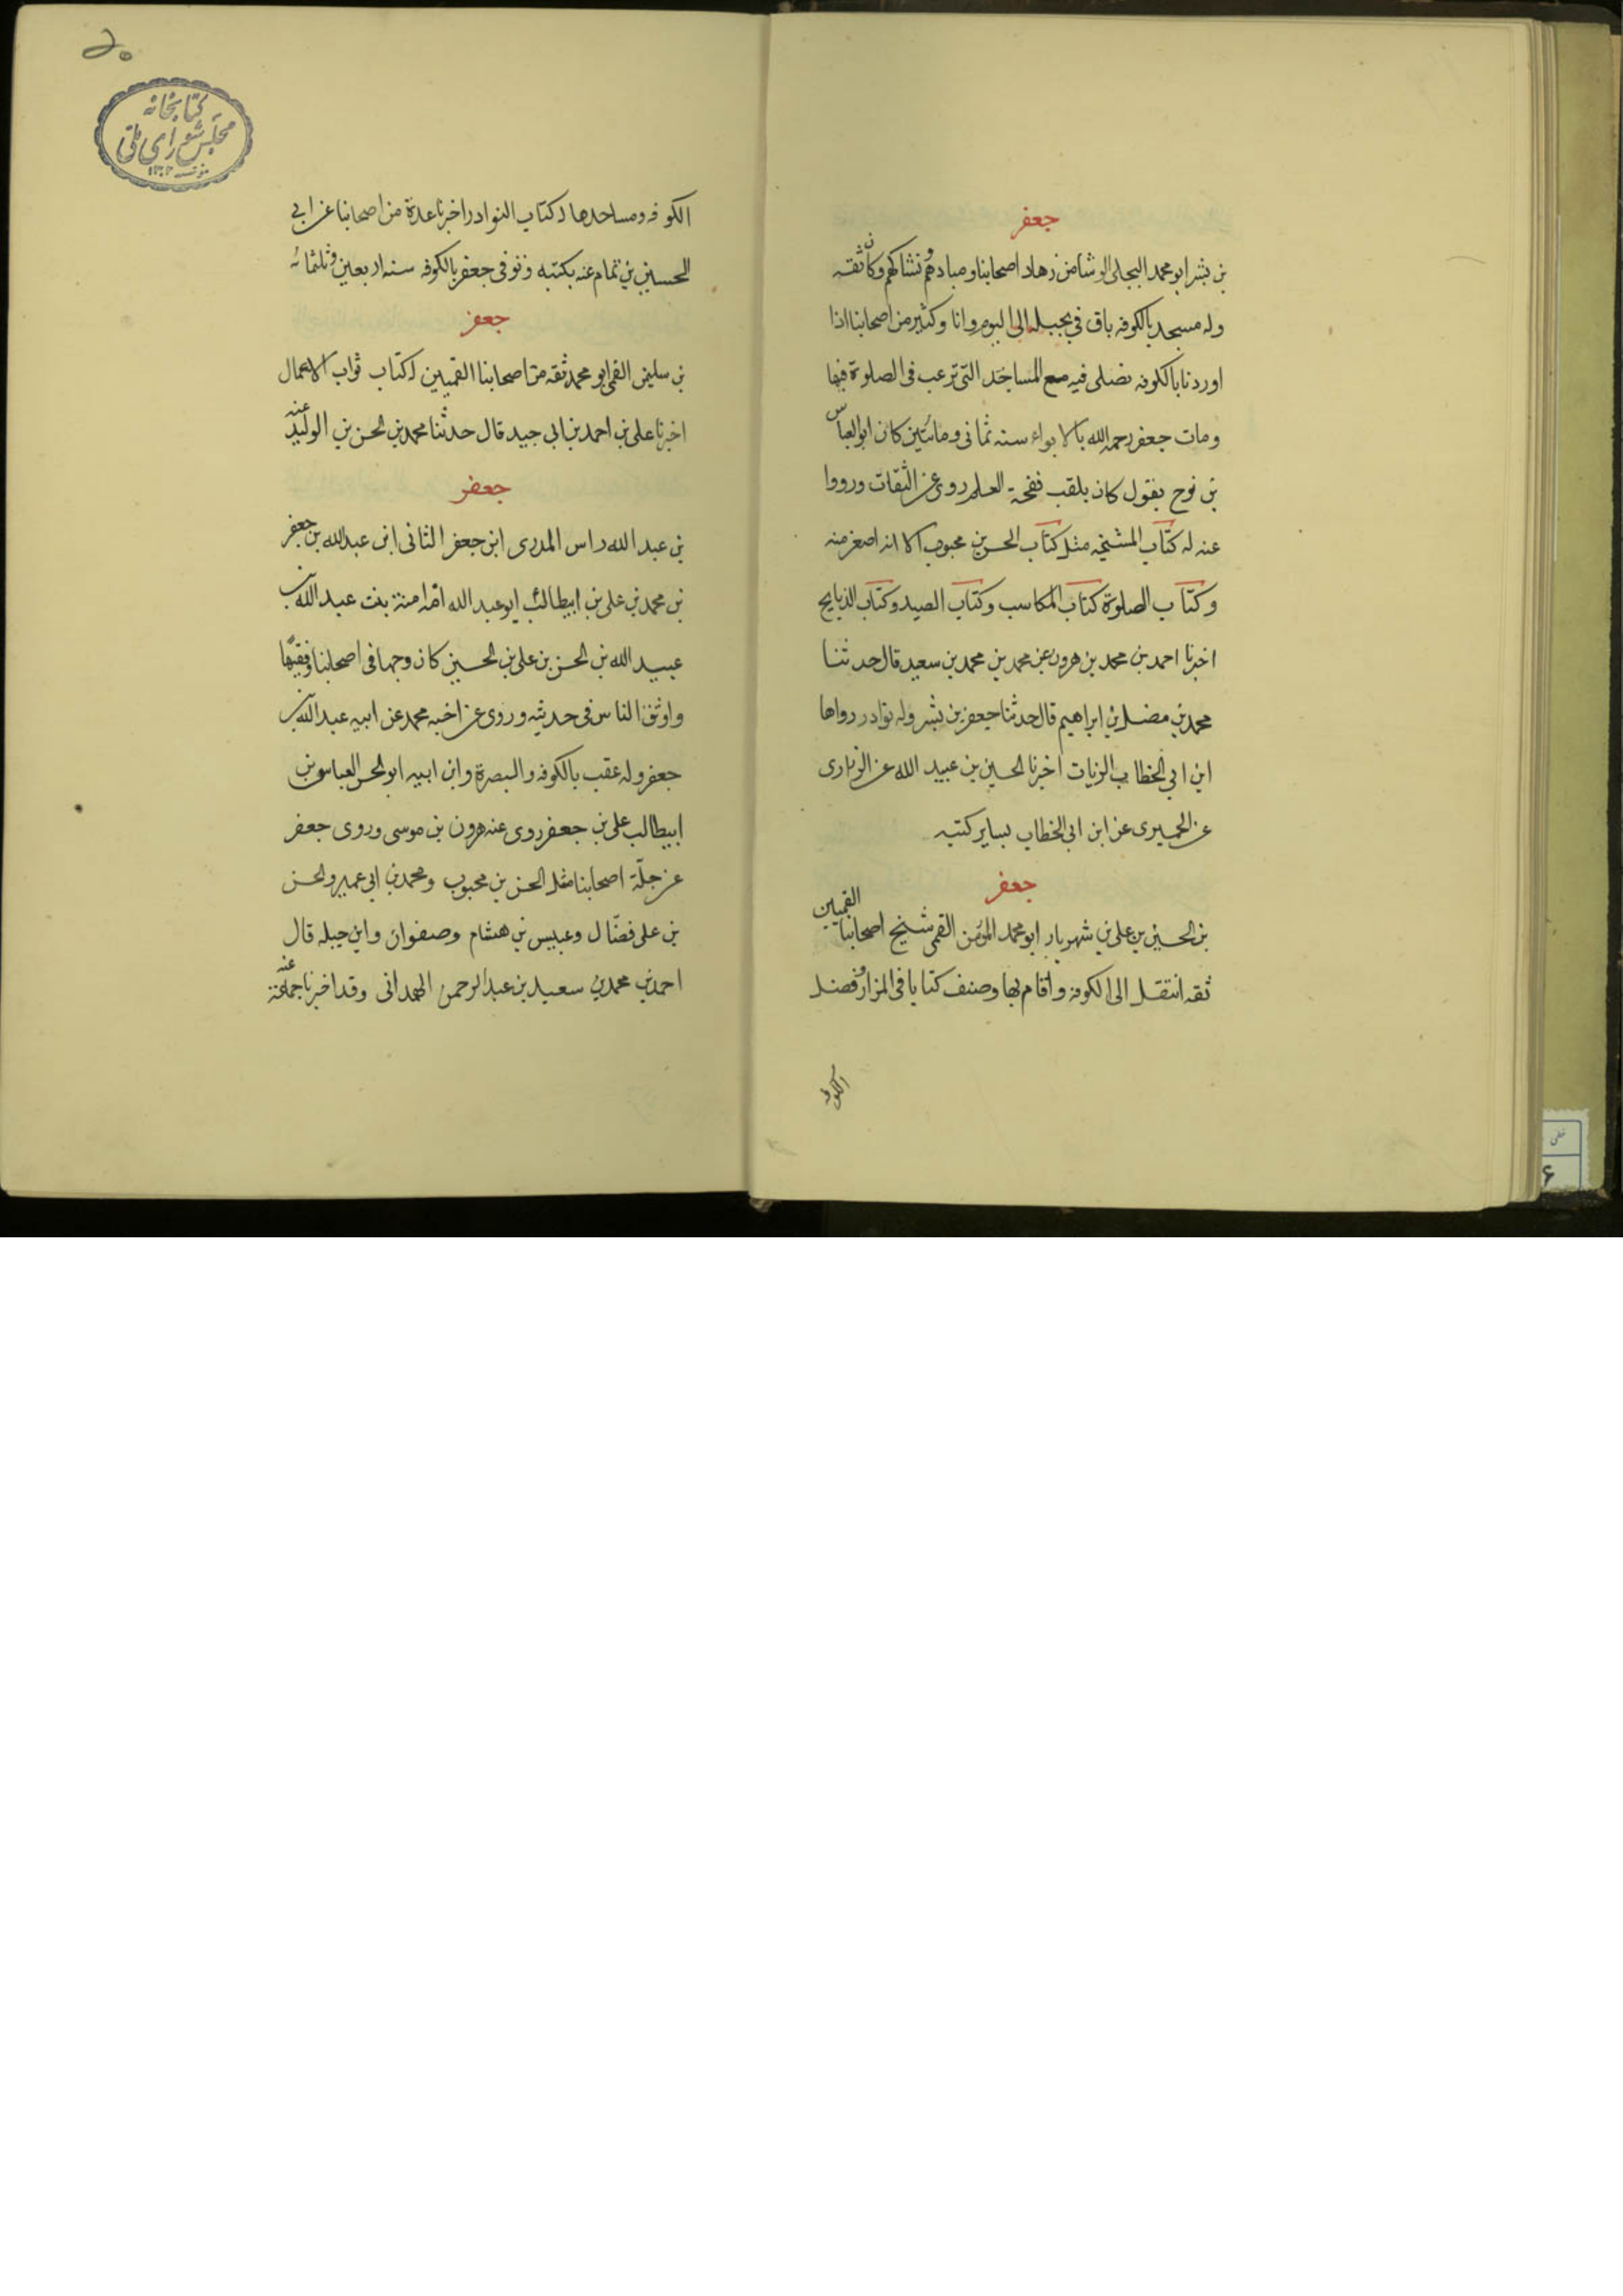 جعفر
بن بشر ابو محمد البجلى الوشا من زهاد اصحابنا وعبادهم ونشاكهم وكان ثقه
وله مسجد بالكوفه باق في بجيله الى اليوم وانا وكثير من اصحابنا اذا
اوردنا بالكوفه نصلى فيه مع المساجد التى ترعب فى الصلوة فيها
ومات جعفر رحمه الله بالابواء سنه ثمانى ومائتين كان ابو العباس
بن نوح يقول كان يلقب نفحة العلم روى عن الثقات ورووا
عنه له كتاب المشيخه مثل كتاب الحسن بن محبوب الا انه اصغر منه
وكتاب الصلوة كتاب المكاسب وكتاب الصيد وكتاب الذبايح
اخبرنا احمد بن محمد بن هرون عن محمد بن محمد بن سعيد قال حدثنا
محمد بن مفضل بن ابراهيم قال حدثنا جعفر بن بشر وله نوادر رواها
ابن ابي الخطاب الزيات اخبرنا الحسين بن عبيد الله عن الزرارى
عن الحميرى عن ابن ابى الخطاب بساير كتبه
جعفر
بن الحسين بن على بن شهريار ابو محمد المؤمن القمى شيخ اصحابنا القميين
ثقه انتقل الى الكوفه واقام بها وصنف كتابا فى المزار وفضل
الكوفه
۵۰
كتابخانه
مجلس شوراى ملى
الكوفه ومساجدها له كتاب النوادر اخبرنا عدة من اصحابنا عن ابى
الحسين بن تمام عنه بكتبه وتوفى جعفر بالكوفه سنه اربعين وثلثمائه
جعفر
بن سليمن القمى ابو محمد ثقه من اصحابنا القميين له كتاب ثواب الاعمال
اخبرنا على بن احمد بن ابي جيد قال حدثنا محمد بن الحسن بن الوليد عنه
جعفر
بن عبد الله راس المدرى ابن جعفر الثانى ابن عبد الله بن جعفر
بن محمد بن على بن ابيطالب ابو عبد الله امه امنة بنت عبد الله بن
عبيد الله بن الحسن بن على بن الحسين كان وجها فى اصحابنا وفقيها
واوثق الناس فى حديثه وروى عن اخيه محمد عن ابيه عبد الله بن
جعفر وله عقب بالكوفه والبصرة وابن ابيه ابو الحسن العباس بن
ابيطالب على بن جعفر روى عنه هرون بن موسى وروى جعفر
عن جلة اصحابنا مثل الحسن بن محبوب ومحمد بن ابى عمير والحسن
بن على فضال وعبيس بن هشام وصفوان وابن جبله قال
احمد بن محمد بن سعيد بن عبد الرحمن الهمدانى وقد اخبرنا جماعة عنه